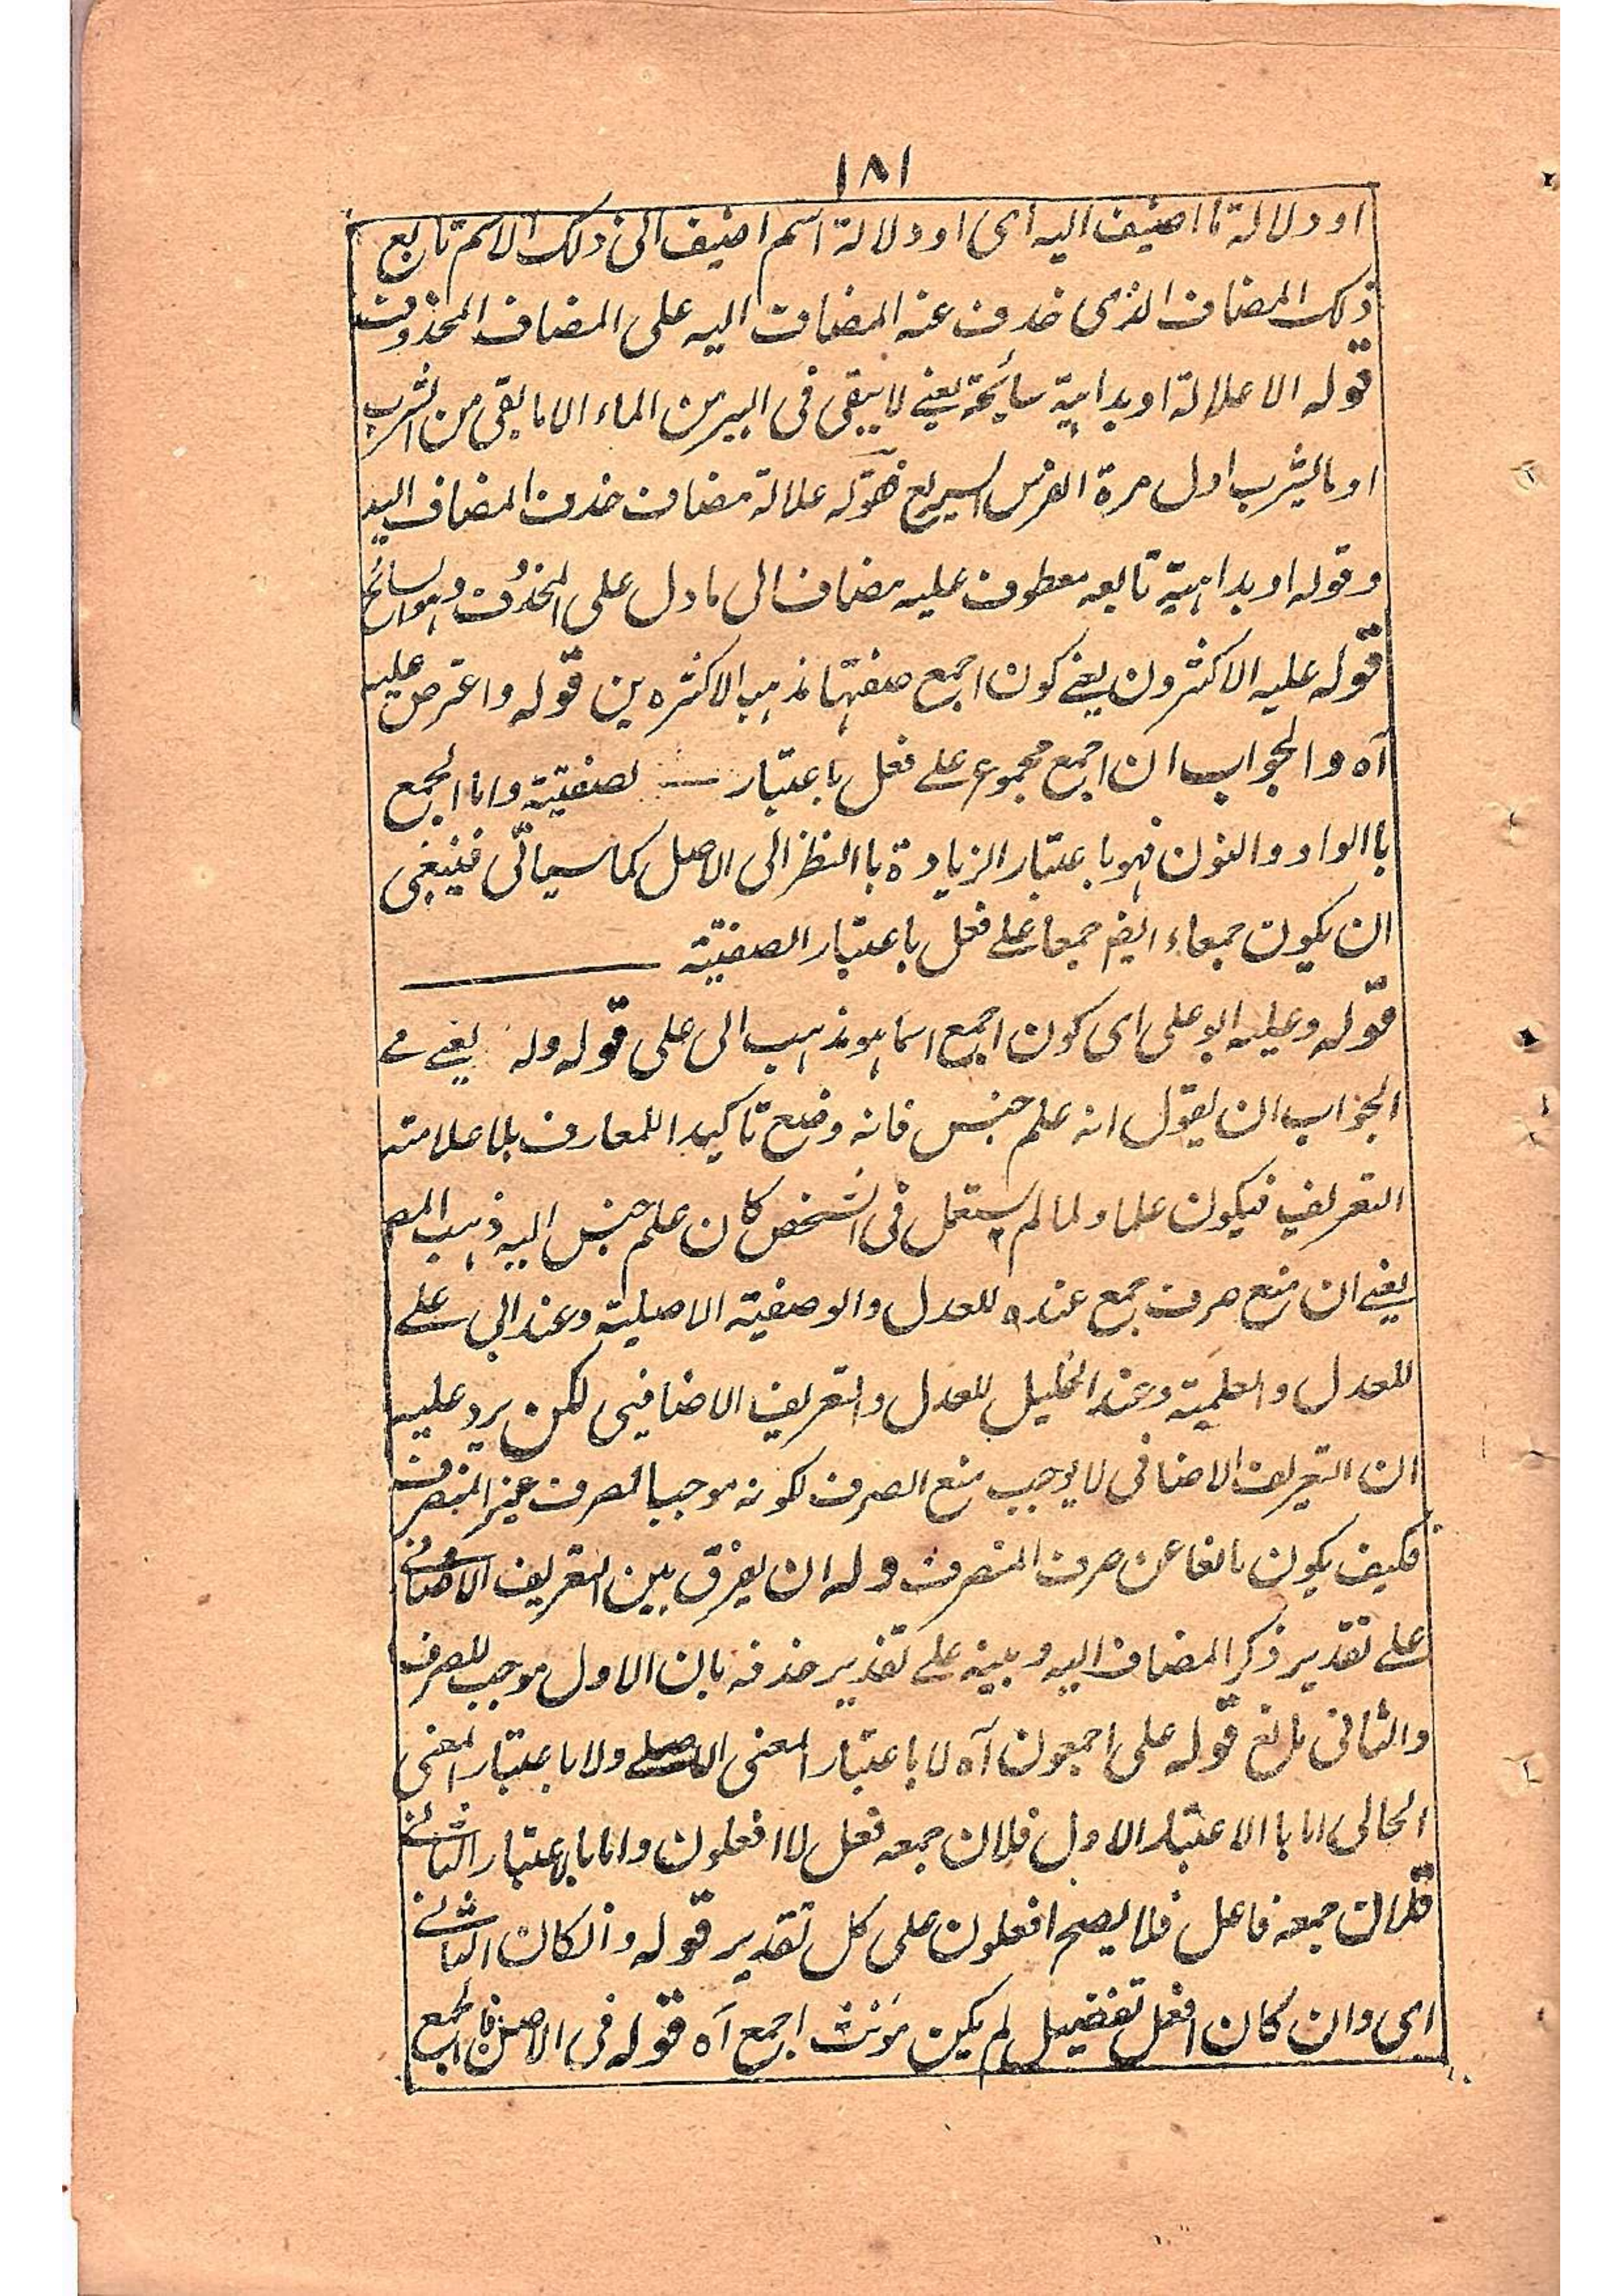 ١٨١
او دلالة ما اضيف اليه اى او دلالة اسم اضيف الى ذلك الاسم تابع
ذلك المضاف الذى حذف عنه المضاف اليه على المضاف المحذوف
قوله الا علالة او بداهة سابحة يعنے لا يبقى فى البير من الماء الا ما بقى من الشرب
او ما يشرب اول مرة الفرس السريع فقوله علالة مضاف حذف المضاف اليه
وقوله او بداهية تابعه معطوف عليه مضاف الى ما دل على المحذوف وهو السابح
قوله عليه الاكثرون يعنے كون اجمع صفتها مذهب الاكثرين قوله واعترض عليه
آه والجواب ان اجمع مجموع علے فعل باعتبار لصفتية واما الجمع
باالواو والنون فهو باعتبار الزيادة باالنظر الى الاصل كما سيأتى فينبغى
ان يكون جمعاء ايضا جمعا علے فعل باعتبار الصفتية
قوله وعليه ابو على اى كون اجمع اسما هو مذهب ابى على قوله وله يعنے فے
الجواب ان يقول انه علم جنس فانه وضع تاكيدا للمعارف بلا علامته
التعريف فيكون علما ولما لم يستعمل فى الشخص كان علم جنس اليه ذهب المص
يعنے ان منع صرف جمع عنده للعدل والوصفية الاصلية وعند ابى علے
للعدل والعلمية وعند الخليل للعدل والتعريف الاضافيى لكن يرد عليه
ان التعريف الاضافى لا يوجب منع الصرف لكونه موجبا لصرف غير المنصرف
فكيف يكون مانعا عن صرف المنصرف وله ان يفرق بين التعريف الاضافے
علے تقدير ذكر المضاف اليه وبينه علے تقدير حذفه بان الاول موجب للصرف
والثانى مانع قوله على اجمعون آه لا باعتبار المعنى الاصلے ولا باعتبار المعنى
الحالى اما باالاعتبار الاول فلان جمعه فعل لا افعلون واما باعتبار الثانے
فلان جمعه فاعل فلا يصح افعلون على كل تقدير قوله وان كان الثانے
اى وان كان افعل تفضيل لم يكن مؤنث اجمع آه قوله فى الاصل فاجمع